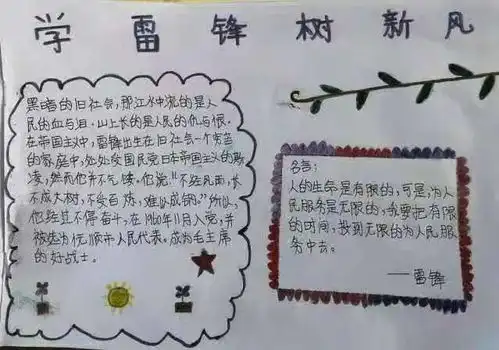 学雷锋树新风
黑暗的旧社会,那江水中流的是人
民的血与泪,山上长的是人民的仇与恨。
在帝国主义中,雷锋出生在旧社会一个穷苦
的家庭中,处处受国民党日本帝国主义的欺
凌,然而他并不气馁。他说:“不经风雨,长
不成大树,不受百炼,难以成钢。”所以,
他经过不停奋斗,在1960年11月入党,并
被选为抚顺市人民代表。成为毛主席
的好战士。
名言:
人的生命是有限的,可是,为人
民服务是无限的,我要把有限
的时间,投到无限的为人民服
务中去。
——雷锋